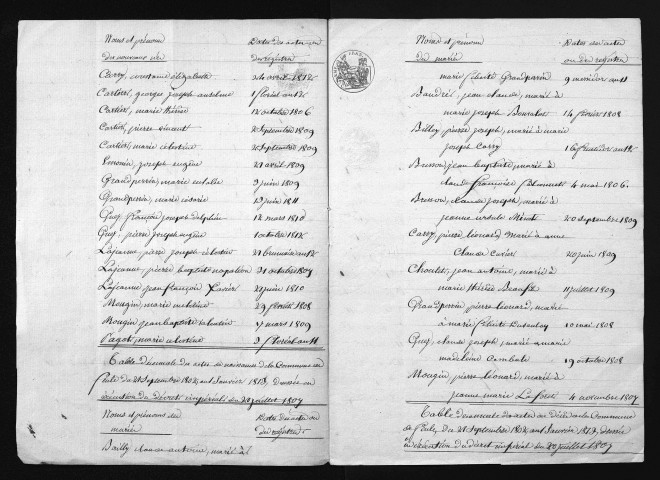 Noms et prénoms Dates des actes ou
des nouveaux nés du registre
Carry, constance élizabeth 24 avril 1812
Cartier, georges joseph anselme 1 floréal an 12
Cartier, marie thérèse 12 octobre 1806
Cartier, pierre vincent 20 septembre 1809
Cartier, marie célestine 20 septembre 1809
joseph eugène 21 avril 1809
Grandperrin, marie eulalie 3 juin 1809
Grandperrin, marie césarie 13 juin 1811
Guy, françois joseph delphin 12 mars 1810
Guy, pierre joseph eugène 1 octobre 1812
Lajeanne, pierre joseph célestin 21 brumaire an 12
Lajeanne, pierre baptiste napoléon 21 octobre 1807
Lajeanne, jean françois xavier 21 juin 1810
Mougin, marie 29 1808
Mougin, jean baptiste valentin 7 mars 1809
Pagot, marie célestine 3 floréal an 11
Table décennale des actes de naissances de la Commune de
du 21 septembre 1802 au 1 janvier 1813, dressée en
exécution du décret impérial du 20 juillet 1807
Noms et prénoms des Dates des actes ou
mariés du registre
Bailly, claude antoine, marié à
Noms et prénoms Dates des actes
des mariés ou du registre
marie félicité Grandperrin 9 messidor an 11
Baudret, jean claude, marié à
marie joseph 14 février 1808
Billey, pierre joseph, marié à marie
joseph Carry 16 an 12
Busson, jean baptiste, marié à
claude françoise 4 mai 1806
Busson, claude joseph, marié à
jeanne ursule 20 septembre 1809
Carry, pierre léonard, marié à anne
Claude Cartier 20 juin 1809
Choulet, jean antoine, marié à
marie thérèse 11 juillet 1809
Grandperrin, pierre léonard, marié
à marie félicité 10 mai 1808
Guy, claude joseph, marié à marie
madeleine 19 octobre 1808
Mougin, pierre léonard, marié à
jeanne marie Laforet 4 novembre 1807
Table décennale des actes de décès de la Commune
de du 21 septembre 1802 au 1 janvier 1813, dressée
en exécution du décret impérial du 20 juillet 1807